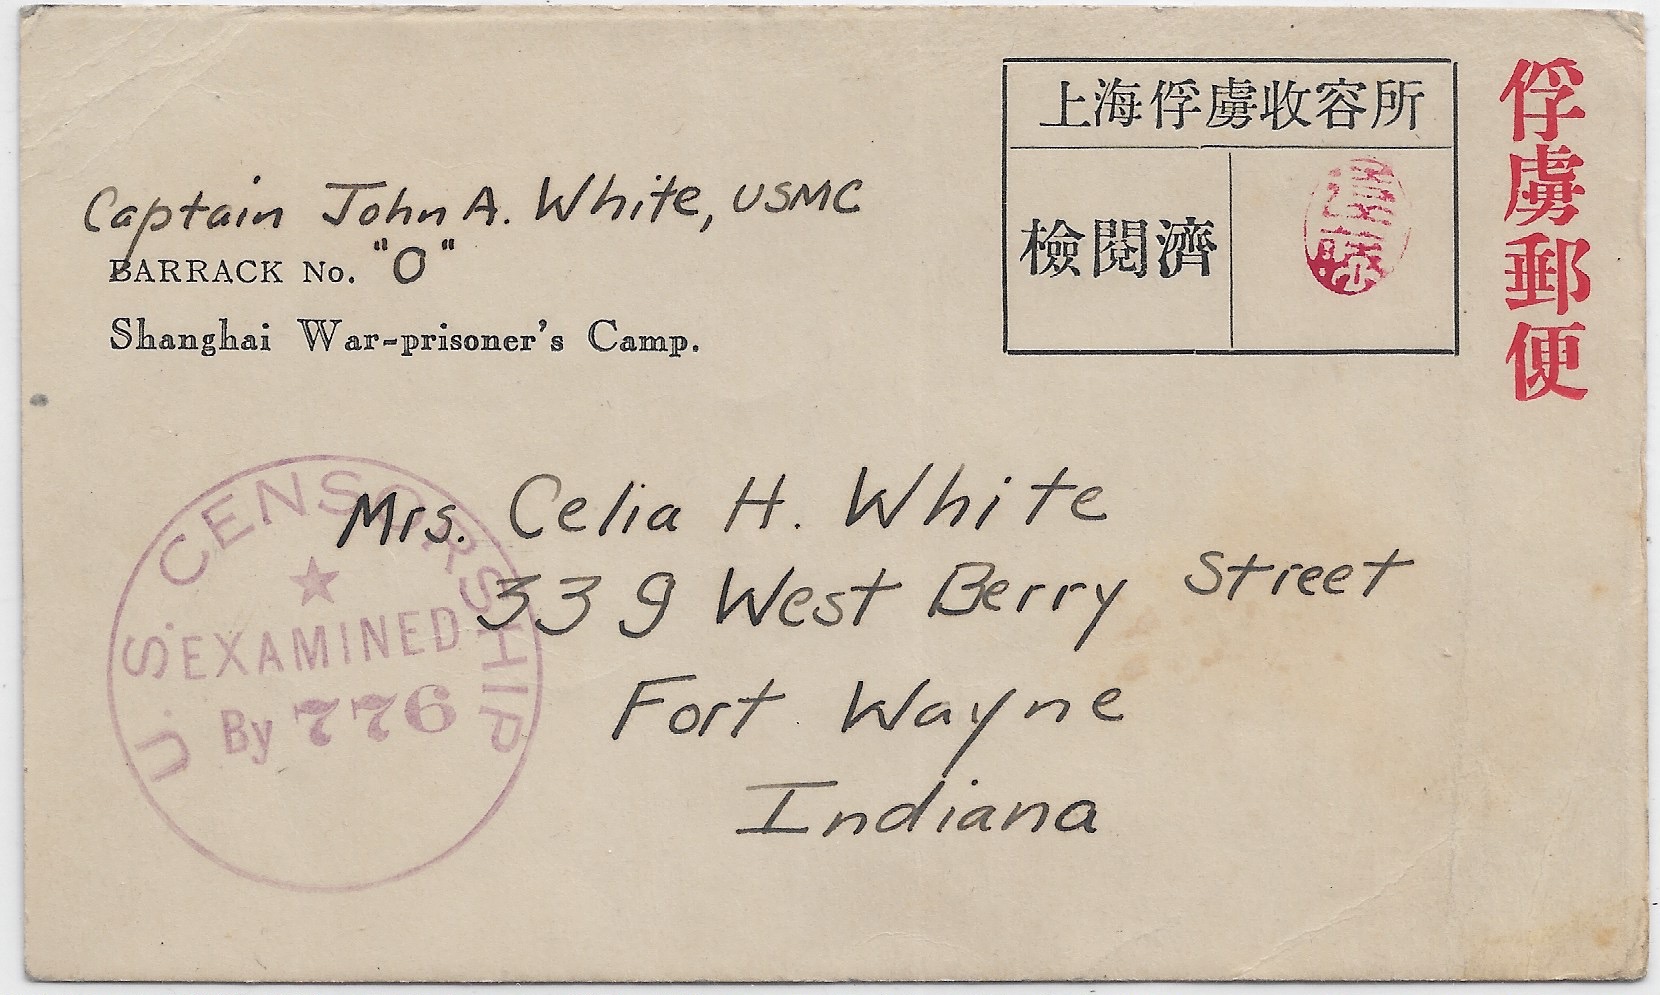 Captain John A. White, USMC
BARRACK No. "O"
Shanghai War-prisoner's Camp.
上海俘虜收容所
檢閱濟
俘虜郵便
U.S. CENSORSHIP
EXAMINED
By 776
Mrs. Celia H. White
339 West Berry Street
Fort Wayne
Indiana